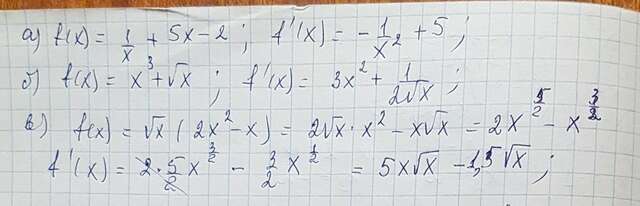 а) f(x) = 1/x + 5x - 2 ; f'(x) = - 1/x² + 5 ;
б) f(x) = x³ + √x ; f'(x) = 3x² + 1/(2√x) ;
в) f(x) = √x (2x² - x) = 2√x · x² - x√x = 2x^(5/2) - x^(3/2)
f'(x) = 2 · 5/2 x^(3/2) - 3/2 x^(1/2) = 5x√x - 1,5√x ;